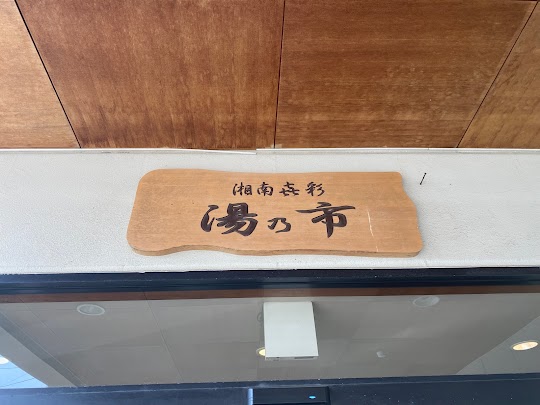 湘南喜彩
湯乃市